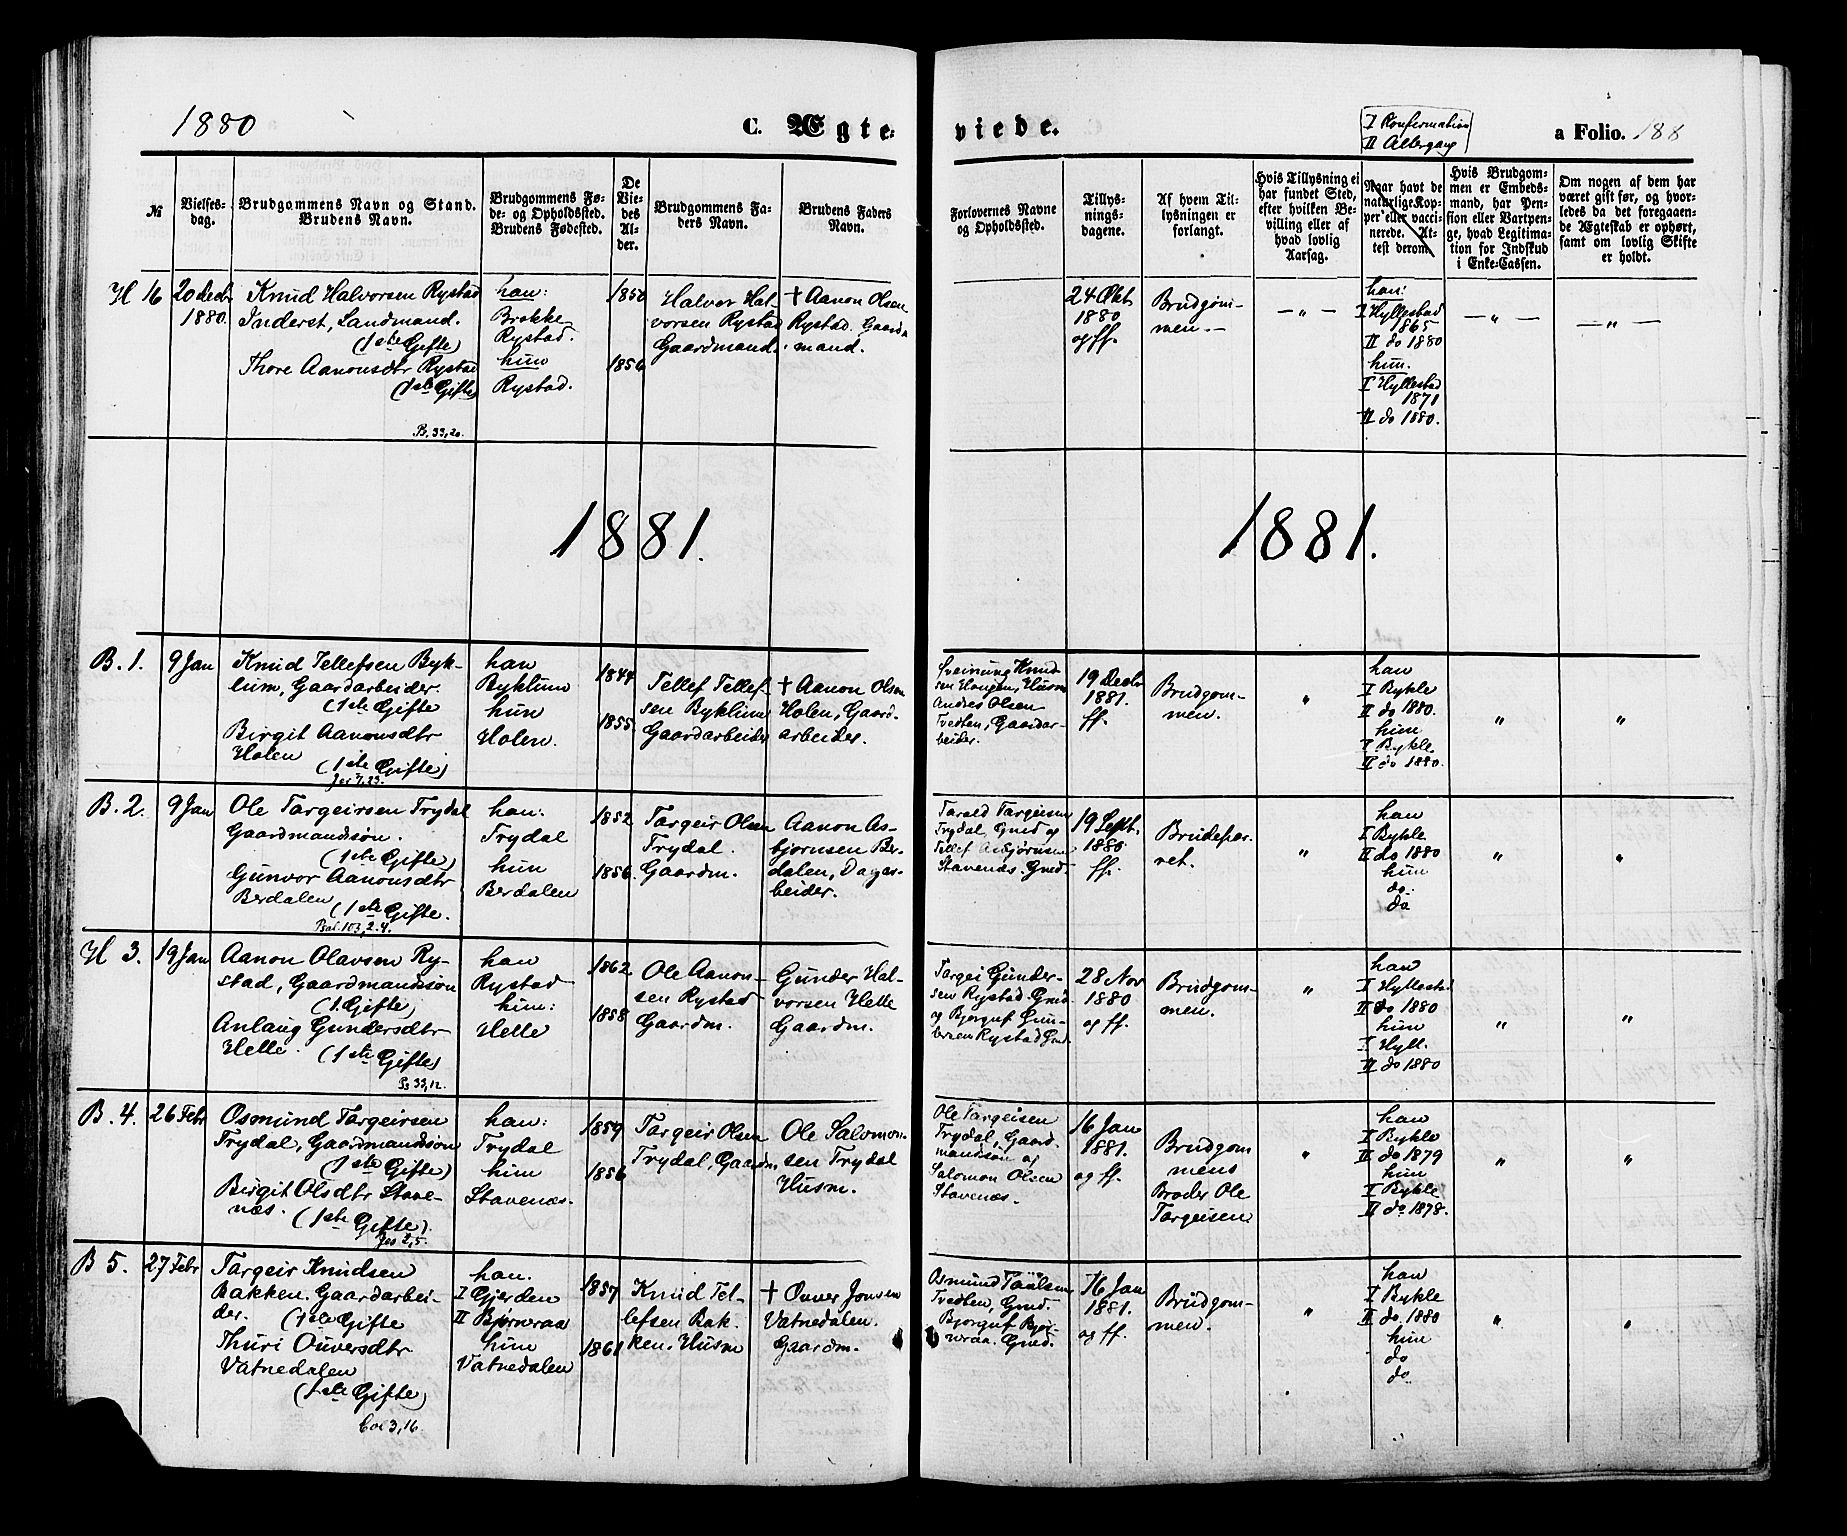 1880
C. Ægte-
viede.
I Konfirmation
II Altergang
a Folio. 188
№
Vielses-
dag.
Brudgommens Navn og Stand.
Brudens Navn.
Brudgommens Fø-
de- og Opholdssted.
Brudens Fødested.
De
Vie-
des
Al-
der.
Brudgommens Fa-
ders Navn.
Brudens Faders
Navn.
Forlovernes Navne
og Opholdssted.
Tillys-
nings-
dagene.
Af hvem Til-
lysningen er
forlangt.
Hvis Tillysning ei
har fundet Sted,
efter hvilken Be-
villing eller af
hvad lovlig
Aarsag.
Naar havt de
naturlige Kop-
per eller vacci-
nerede. At-
test derom.
Hvis Brudgom-
men er Embeds-
mand, har Pen-
sion eller Vartpen-
ge, hvad Legitima-
tion for Indskud
i Enke-Cassen.
Om nogen af dem har
været gift før, og hvor-
ledes da det foregaaen-
de Ægteskab er ophørt,
samt om lovlig Skifte
er holdt.
H 16
20 Decbr
1880.
Knud Halvorsen Rystad
Inderst, Landmand.
(1ste Gifte)
Thore Aanonsdtr Rystad
(1ste Gifte)
B. 33,20.
han:
Brokke-
Rystad.
hun
Rystad.
1850
1856
Halvor Hal-
vorsen Rystad
Gaardmand.
† Aanon Olsen
Rystad. Gaard-
mand.
24 Okt
1880
og ff.
Brudgom-
men.-
— „ —
han:
I Hyllestad
1865
II do 1880
hun.
I Hyllestad
1871
II do 1880.
— „ —
— „ —
1881.
1881.
B. 1.
9 Jan
Knud Tellefsen Byk-
lum, Gaardarbeider.
(1ste Gifte
Birgit Aanonsdtr
Holen
(1ste Gifte)
Jos 7,23.
han
Byklum
hun
Holen.
1844
1855.
Tellef Tellef-
sen Byklum
Gaardarbeider
† Aanon Olsen
Holen, Gaard-
arbeider.
Sveinung Knud-
sen Haugen, Husm
Andres Olsen
Tvedten, Gaardar-
beider.
19 Decbr
1881.
ff.
Brudgom-
men.
„
han
I Bykle
II do 1880.
hun
I Bykle.
II do 1880.
„
„
B. 2.
9 Jan
Ole Targeirsen Trydal
Gaardmandssøn.
(1ste Gifte)
Gunvor Aanonsdtr
Berdalen
(1ste Gifte.
Sal. 103, 2.4.
han:
Trydal
hun
Berdalen
1852
1856.
Targeir Olsen
Trydal.
Gaardm.
Aanon As-
bjørnsen Be-
dalen, Dagar-
beider.
Tarald Targeisen
Trydal, Gmd og
Tellef Asbjørnsen
Stavenæs. Gmd.
19 Sept.
1880
ff.
Brudepar-
ret.
„
han
I Bykle
II do 1880
hun
do.
do
„
„
H 3.
19 Jan
Aanon Olavsen Ry-
stad, Gaardmandssøn
(1. Gifte)
Anlaug Gundersdtr
Helle.
(1ste Gifte)
Ps 33,12.
han
Rystad
hun:
Helle
1862.
1858
Ole Aanon-
sen Rystad
Gaardm.
Gunder Hal-
vorsen Helle
Gaardm.
Targei Gunder-
sen Rystad. Gmd
og Bjorguf Gun-
dersen Rystad Gmd.
28 Nov
1880
og ff.
Brudgom-
men.
„
han
I Hyllestad
II do 1880
hun
I Hyll.
II do 1880
„
„
B. 4.
26 Febr
Osmund Targeirsen
Trydal, Gaardmandssøn
(1ste Gifte)
Birgit Olsdtr Stave-
næs.
(1ste Gifte).
Jes 2,5.
han:
Trydal
hun
Stavenæs.
1859
1856
Targeir Olsen
Trydal, Gaardm
Ole Salomon-
sen Trydal
Husm.
Ole Targeisen
Trydal, Gaard-
mandssøn og
Salomon Olsen
Stavenæs.
16 Jan
1881.
og ff.
Brudgom
mens
Broder Ole
Targeisen.
„
han
I Bykle
II do 1879
hun
I Bykle
II do 1878.
„
„
B 5.
27 Febr
Targeir Knudsen
Bakken. Gaardarbei-
der.
(1ste Gifte
Thuri Ouversdtr
Vatnedalen
(1ste Gifte)
Col 3,16.
han.
I Gjerden
II Bjørnraa
hun
Vatnedalen
1857
1861
Knud Tel-
lefsen Bak-
ken. Husm
† Ouver Jonsen
Vatnedalen.
Gaardm.
Osmund Taalsen
Tvedten, Gmd.
Bjorguf Bjør-
nraa. Gmd.
16 Jan
1881.
og ff.
Brudgom-
men.
„
han
I Bykle
II do 1880
hun
do
do
„
„